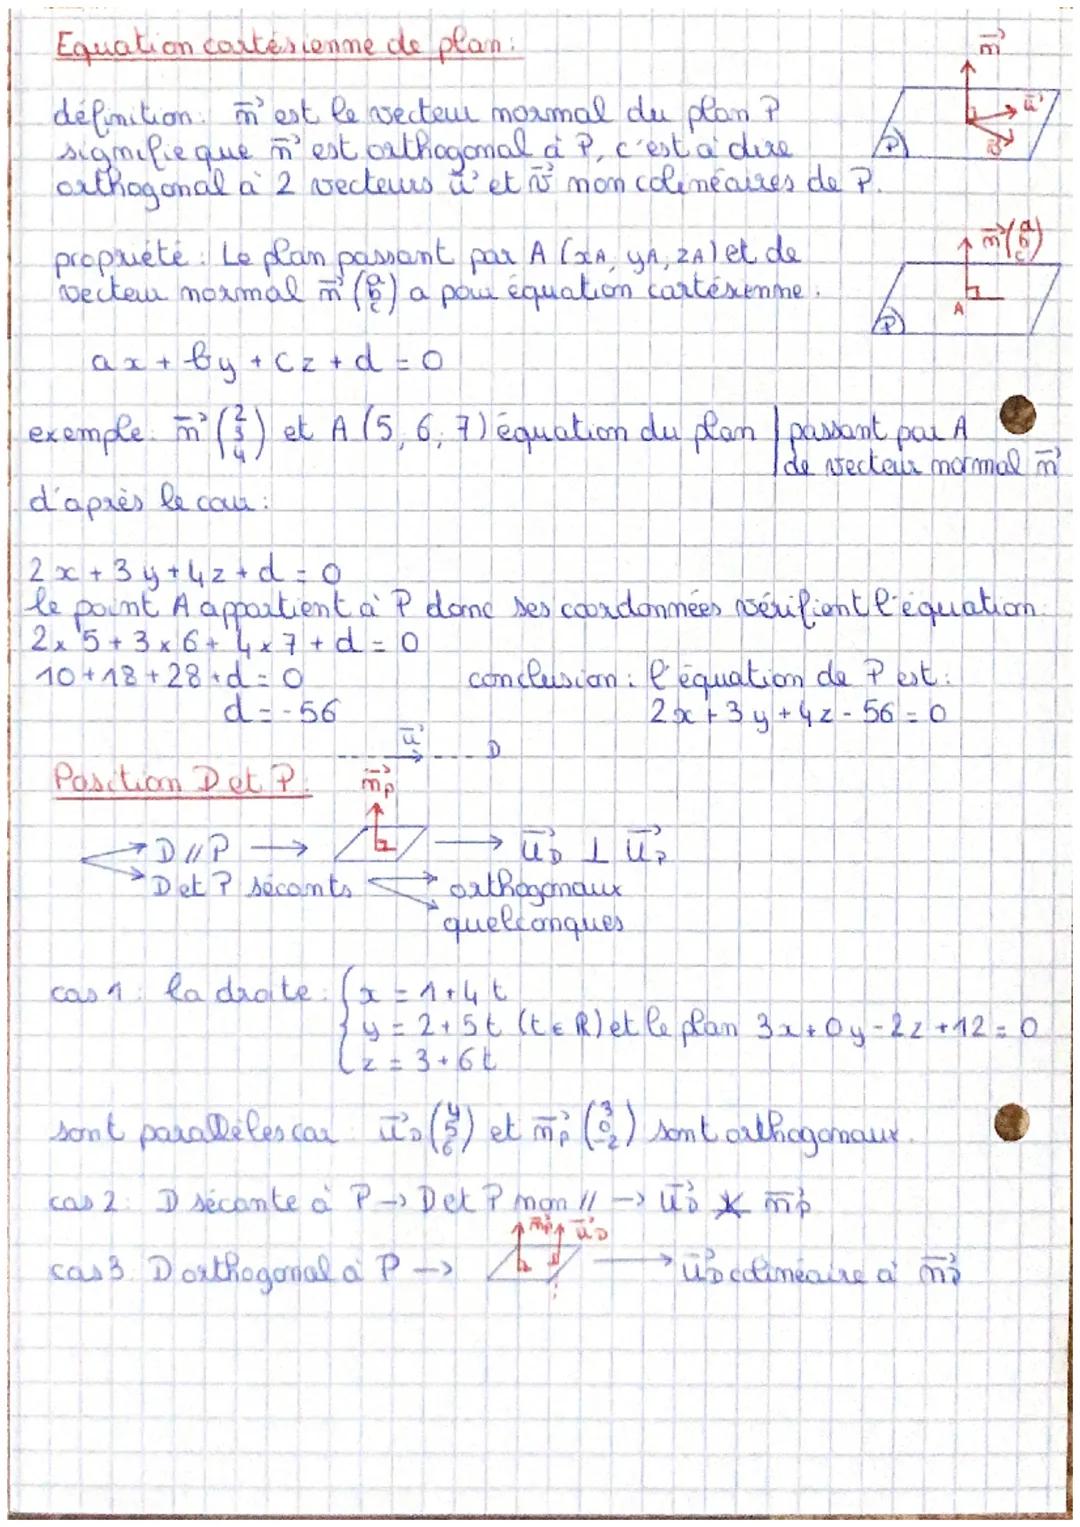 Equation cartésienne de plan:
définition: n⃗ est le vecteur normal du plan P
signifie que n⃗ est orthogonal à P, c'est à dire
orthogonal à 2 vecteurs u⃗ et v⃗ non colinéaires de P.
n⃗
u⃗
v⃗
P
propriété: Le plan passant par A (xA, yA, zA) et de
vecteur normal n⃗ (a b c) a pour équation cartésienne:
n⃗ (a b c)
A
P
ax + by + cz + d = 0
exemple: n⃗ (2 3 4) et A (5, 6, 7) équation du plan | passant par A
de vecteur normal n⃗
d'après le cour:
2x + 3y + 4z + d = 0
le point A appartient à P donc ses coordonnées vérifient l'équation.
2x5 + 3x6 + 4x7 + d = 0
10 + 18 + 28 + d = 0
d = -56
conclusion: l'équation de P est:
2x + 3y + 4z - 56 = 0
u⃗ D
Position D et P:
n⃗P
D // P → → u⃗D ⊥ u⃗P
D et P sécants orthogonaux
quelconques
cas 1: la droite: { x = 1 + 4t
y = 2 + 5t (t ∈ R) et le plan 3x + 0y - 2z + 12 = 0
z = 3 + 6t
sont parallèles car u⃗D (4 5 6) et n⃗P (3 0 -2) sont orthogonaux.
cas 2: D sécante à P → D et P non // → u⃗D ⊥̸ n⃗P
n⃗P u⃗D
cas 3: D orthogonal à P → → u⃗D colinéaire à n⃗P